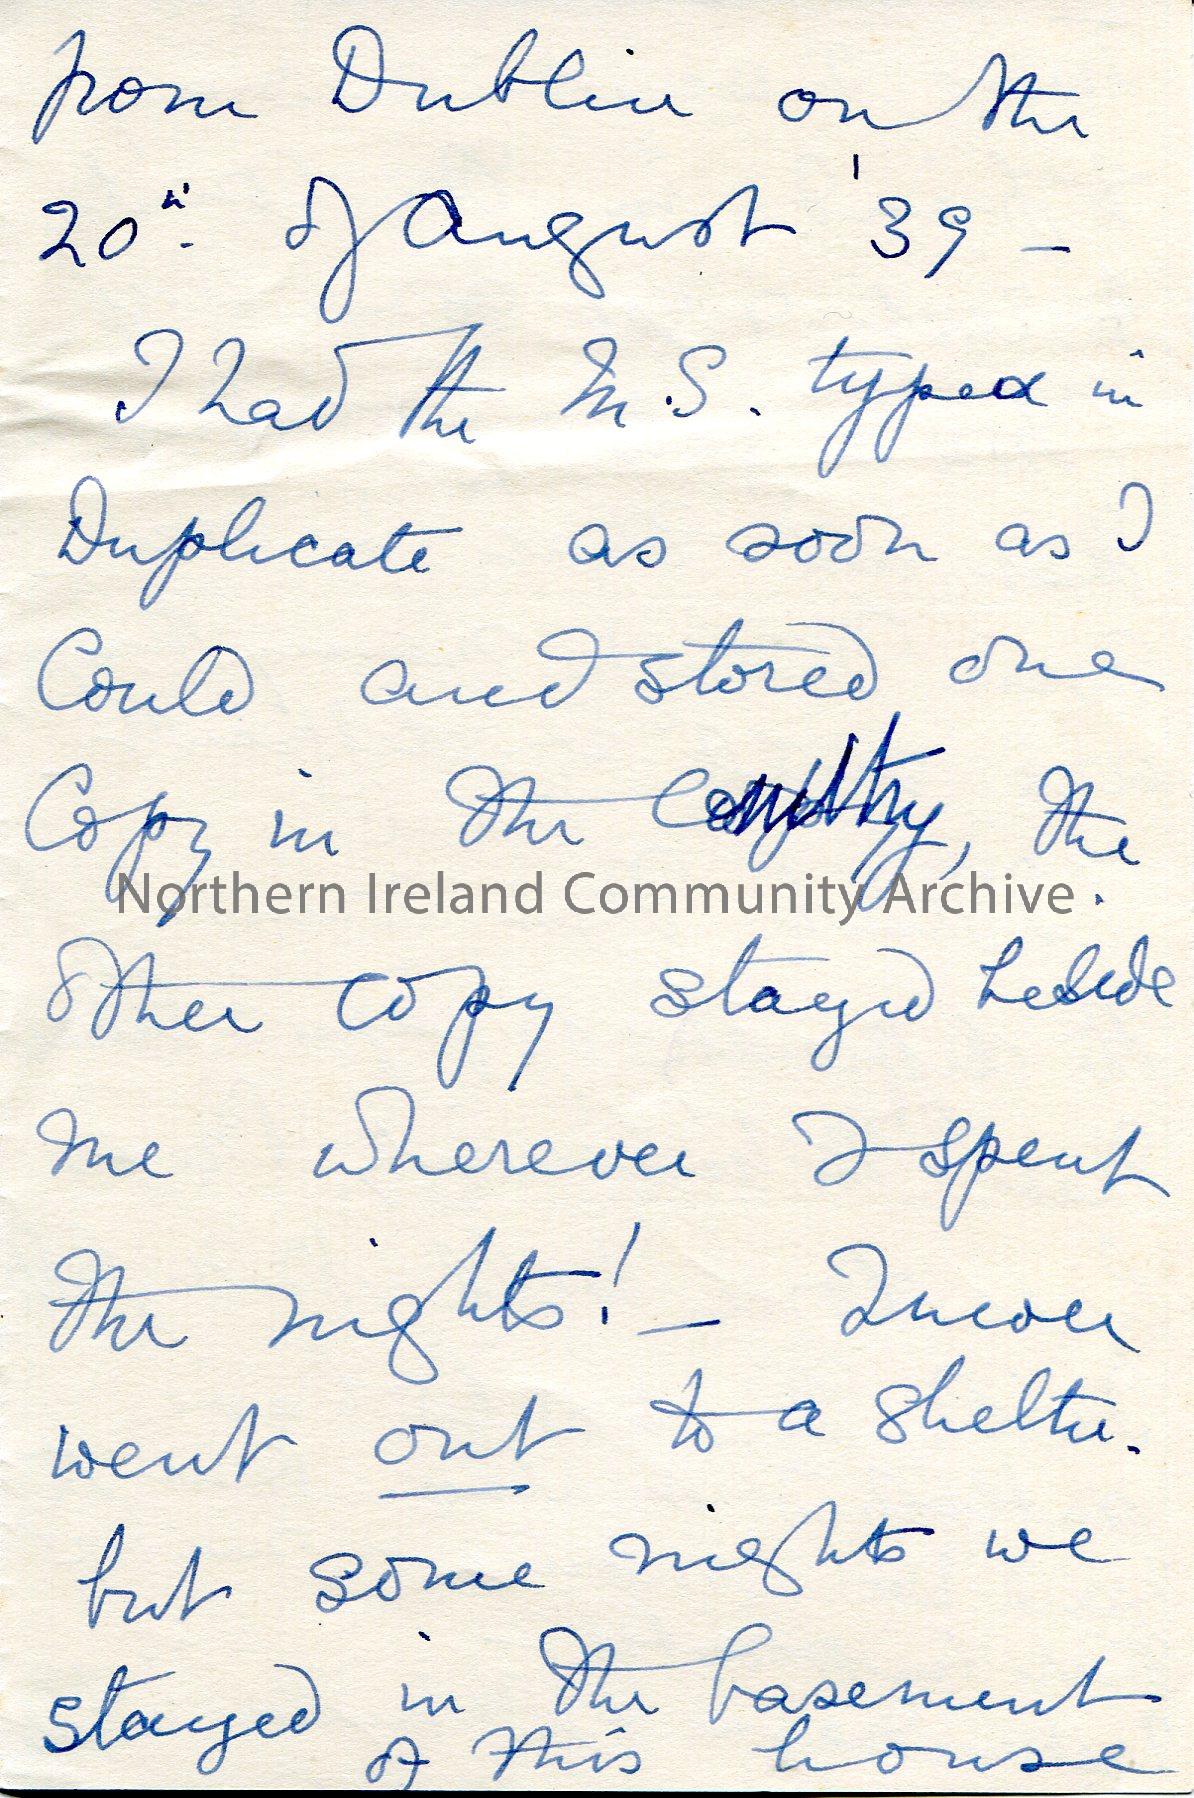 from Dublin on the
20th of August '39 –
I had the M.S. typed in
Duplicate as soon as I
Could and stored one
Copy in the country, the
Northern Ireland Community Archive
other copy stayed beside
me wherever I spent
the nights! – I never
went out to a shelter.
but some nights we
stayed in the basement
of this house